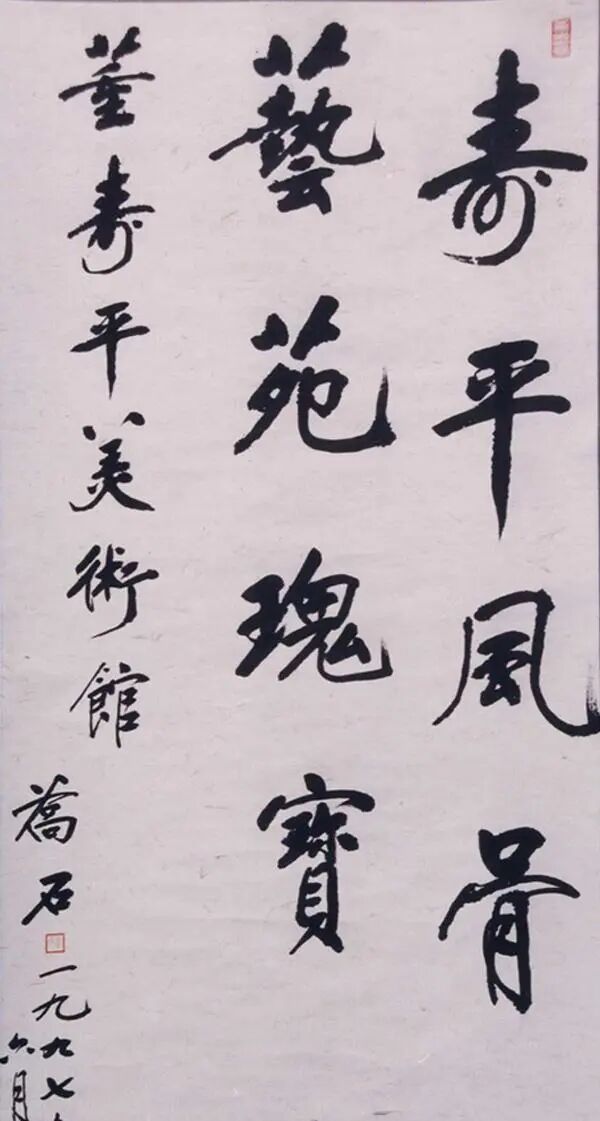 壽平風骨
藝苑瑰寶
董壽平美術館
喬石
一九九七
六月